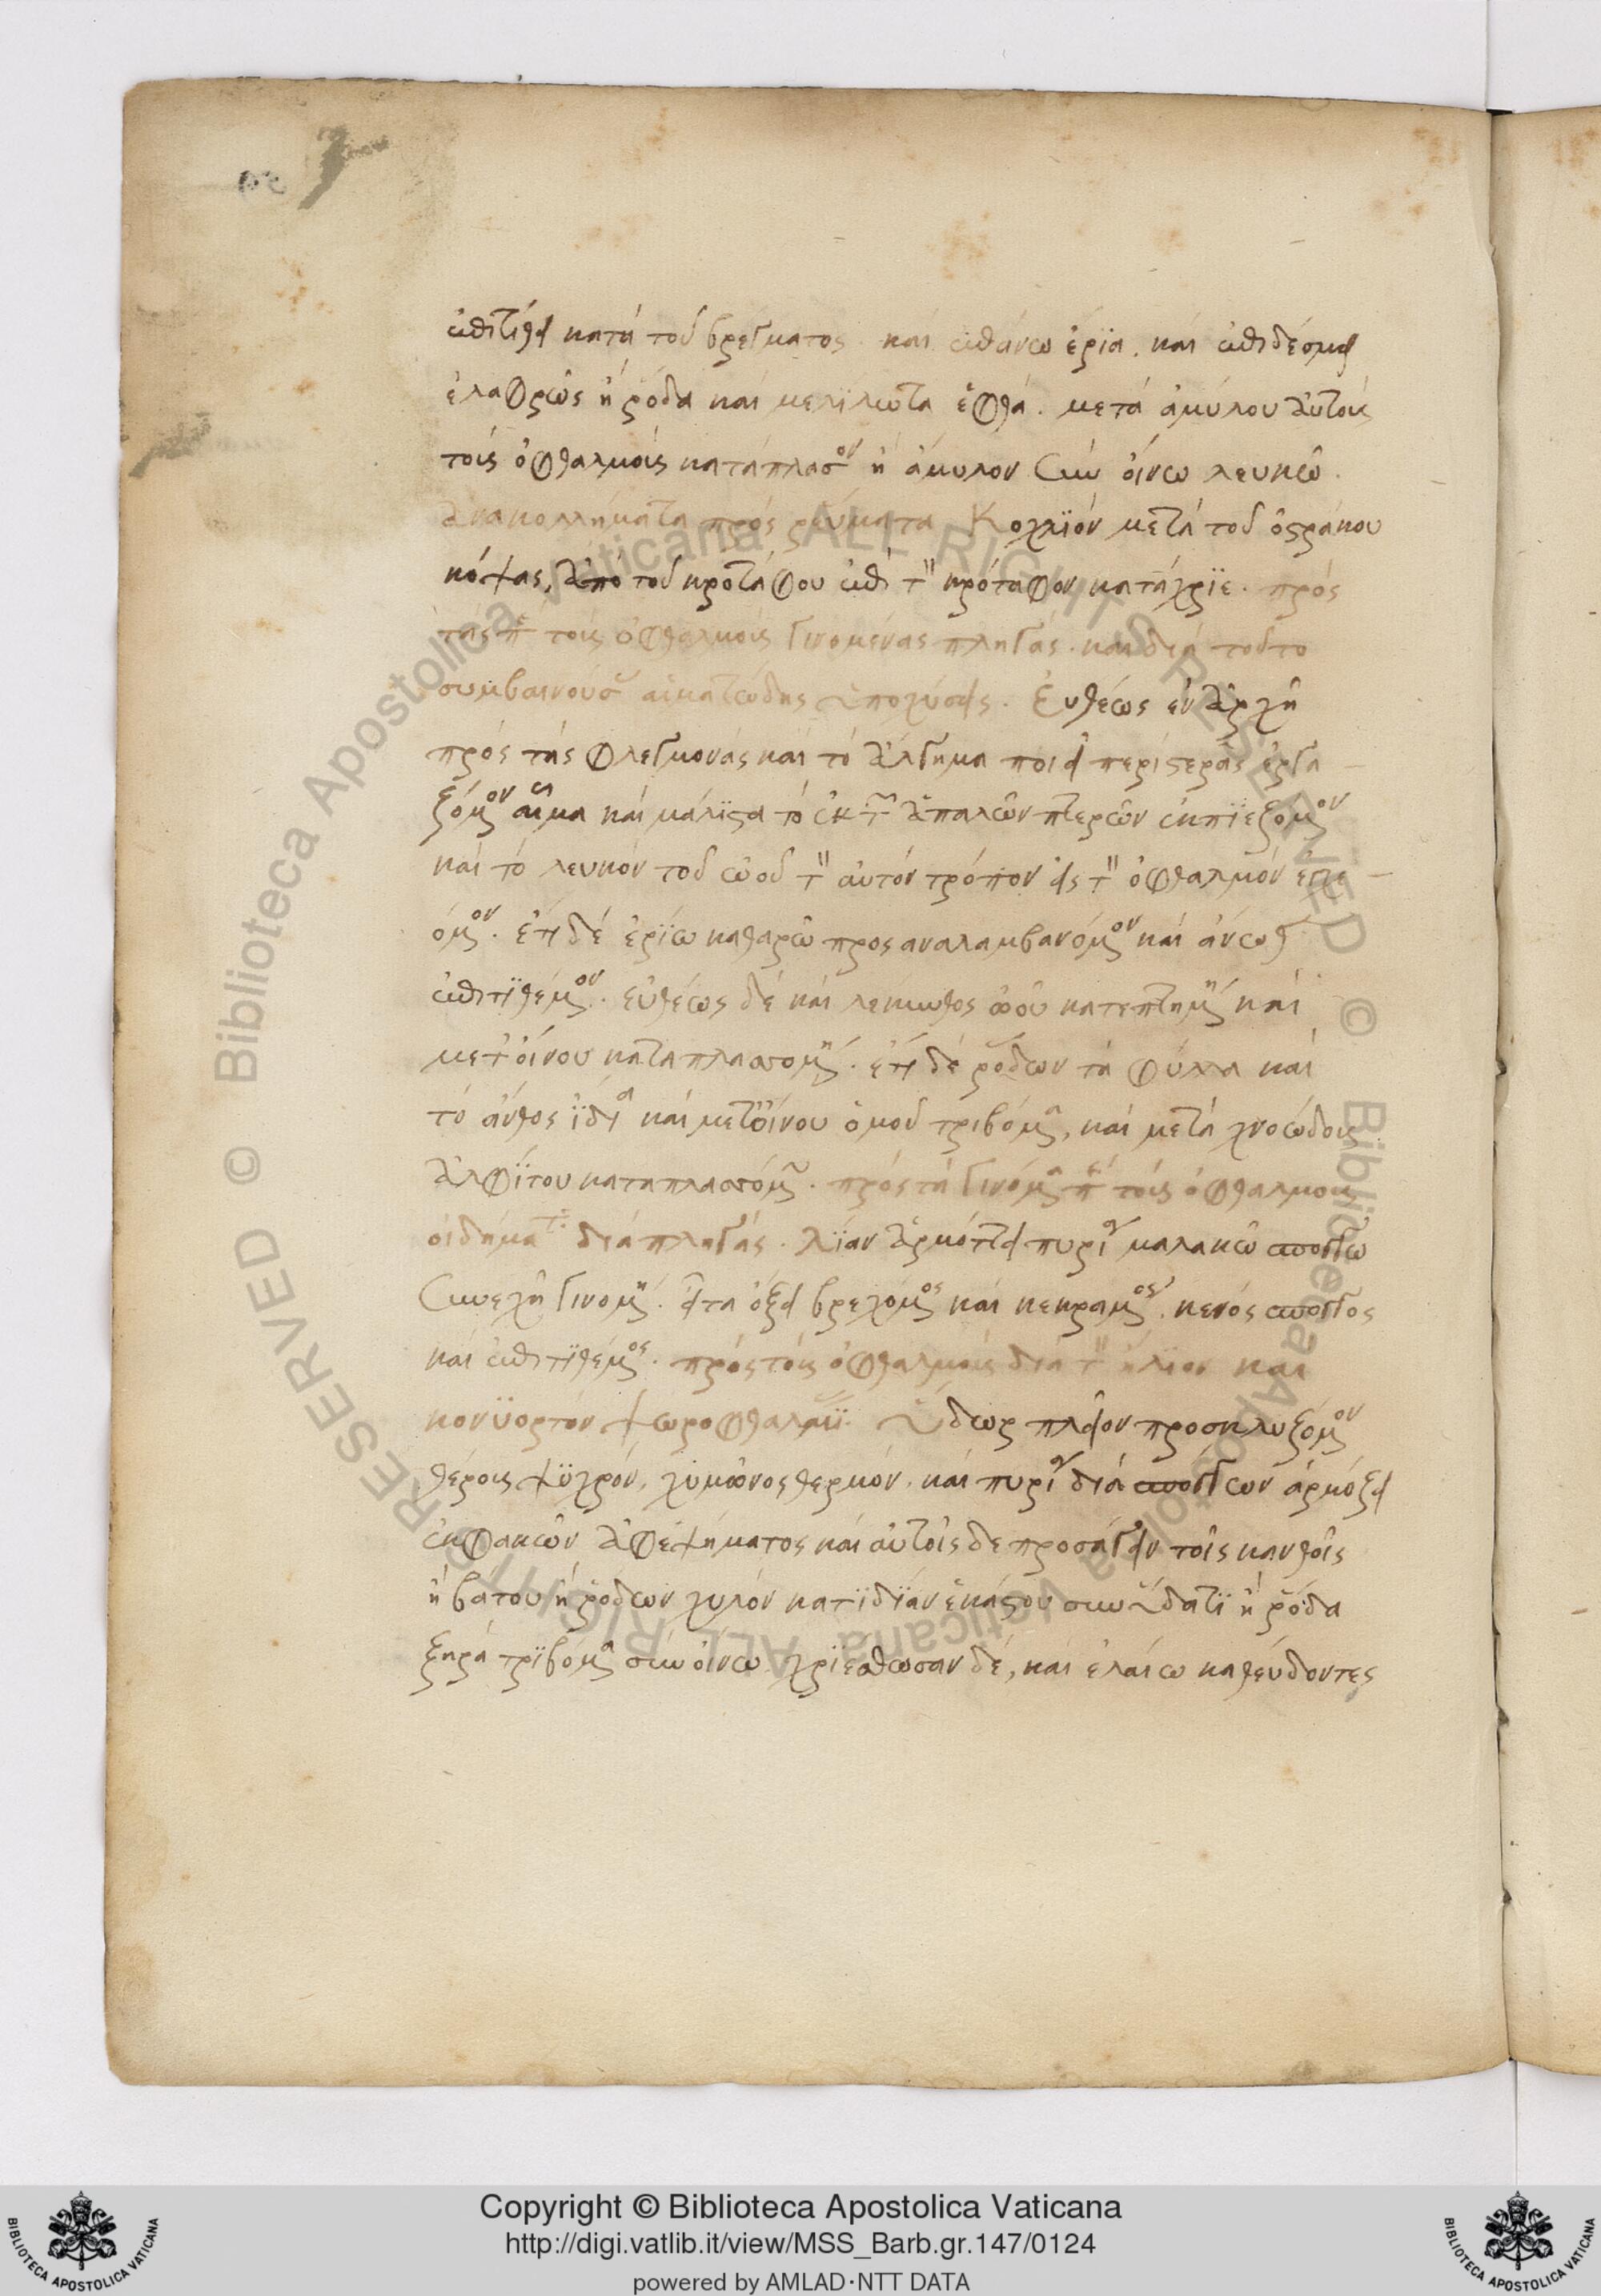 ἐπιτίθει κατὰ τοῦ βρέγματος. καὶ ἐπάνω ἐρϊα. καὶ ἐπιδέσμει
ἐλαφρῶς ἢ ῥόδα καὶ μελίλωτα ἑφθὰ. μετὰ ἀμύλου αὐτοῖς
τοῖς ὀφθαλμοῖς κατάπλασον ἢ ἄμυλον σὺν οἴνω λευκῶ.
Ἀνακολλήματα πρὸς ῥεύματα Κοχλϊὸν μετὰ τοῦ ὀστράκου
κόψας, ἀπὸ τοῦ κροτάφου ἐπὶ τὸν κρόταφον κατάχρϊε. πρὸς
τὰς περὶ τοῖς ὀφθαλμοῖς γινομένας πληγάς. καὶ διὰ τοῦτο
συμβαινούσας αἱματώδης ὑποχύσεις. Εὐθέως ἐν ἀρχῆ
πρὸς τὰς φλεγμονὰς καὶ τὸ ἄλγημα ποιεῖ περιστερᾶς ἐργα
ζόμενον αἷμα καὶ μάλϊστα τὸ ἐκ τῶν ἁπαλῶν πτερῶν ἐκπϊεζόμενον
καὶ τὸ λευκὸν τοῦ ὠοῦ τὸν αὐτὸν τρόπον εἰς τὸν ὀφθαλμὸν ἐγχε
όμενον. ἔτι δὲ ἐρϊω καθαρῶ προσαναλαμβανόμενον καὶ ἄνωθεν
ἐπιτϊθέμενον. εὐθέως δὲ καὶ λέκιθος ὠοῦ κατεπτημένη καὶ
μετὰ οἴνου καταπλασσομένη. ἔτι δὲ ῥόδων τὰ φύλλα καὶ
τὸ ἄνθος ϊδία καὶ μετὰ οἴνου ὁμοῦ τριβόμενα, καὶ μετὰ χνοώδους
ἀλφϊτου καταπλασσόμενα. πρὸς τὰ γινόμενα περὶ τοῖς ὀφθαλμοῖς
οἰδήματα διὰ πληγάς. λϊαν ἁρμόττει πυρία μαλακῶ σπόγγω
Συνεχῆ γινομένη. εἶτα ὄξει βρεχόμενος καὶ κεκραμένος. κενὸς σπόγγος
καὶ ἐπιτϊθέμενος. πρὸς τοῖς ὀφθαλμοῖς διὰ τὸν ἥλιον καὶ
κονϊορτὸν ψωροφθαλμϊα. Ὕδωρ πλεῖον προσκλυζόμενον
θέρους ψϋχρόν, χϋμῶνος θερμόν. καὶ πυρία διὰ σπόγγων ἁρμόζει
ἐκ φακῶν ἀφεψήματος καὶ αὐτοῖς δὲ προσάγειν τοῖς κανθοῖς
ἢ βάτου ἢ ῥόδων χυλὸν κατϊδϊαν ἑκάστου σὺν ὕδατϊ ἢ ῥόδα
ξηρὰ τρϊβόμενα σὺν οἴνω χρϊέσθωσαν δὲ, καὶ ἐλαίω καθεύδοντες
Copyright © Biblioteca Apostolica Vaticana
http://digi.vatlib.it/view/MSS_Barb.gr.147/0124
powered by AMLAD·NTT DATA